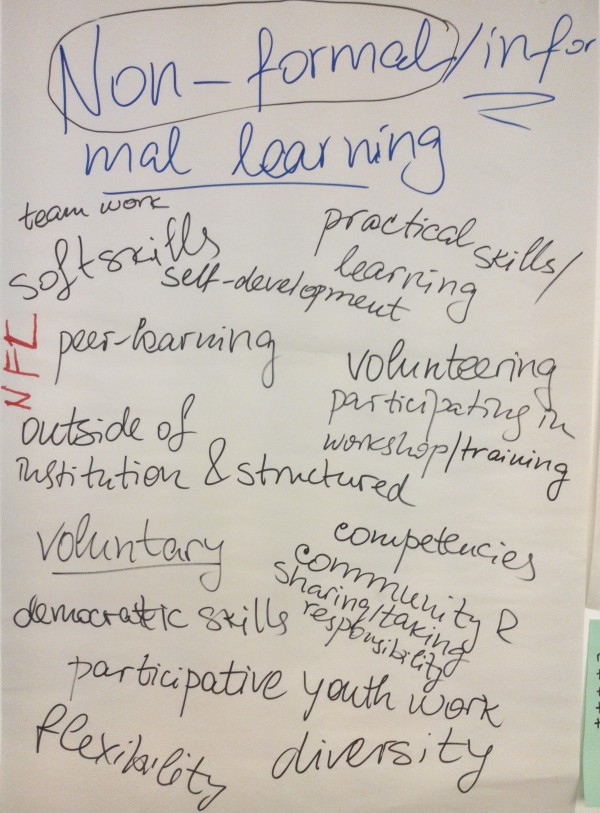 Non-formal/infor
mal learning
team work
soft skills
self-development
practical skills/
learning
NFL
peer-learning
volunteering
participating in
workshop/training
outside of
institution & structured
voluntary
competencies
community &
sharing/taking
responsibility
democratic skills
participative youth work
flexibility
diversity